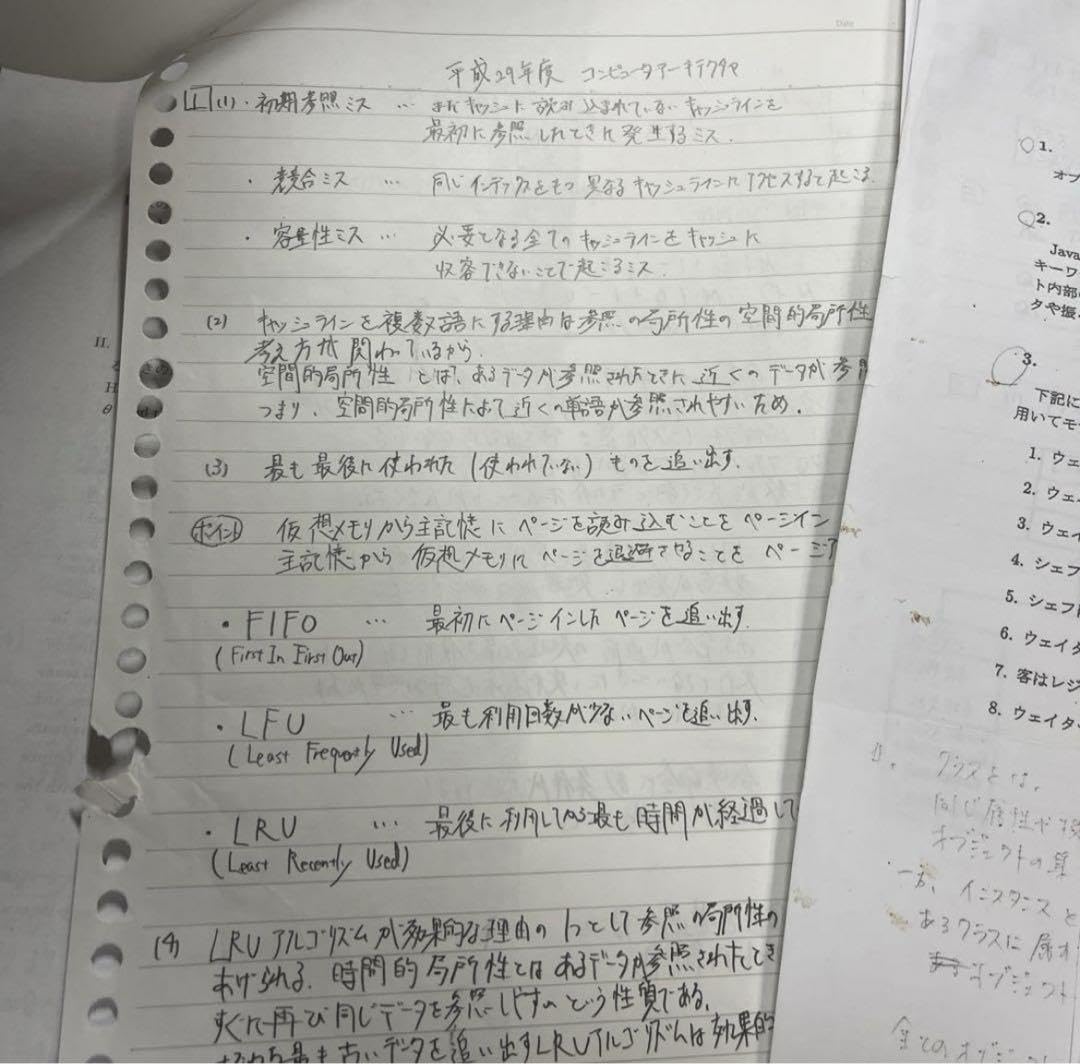 Date
平成29年度 コンピュータアーキテクチャ
1 (1)・初期参照ミス … まだキャッシュに読み込まれていないキャッシュラインを
最初に参照したときに発生するミス.
・競合ミス … 同じインデックスをもつ異なるキャッシュラインにアクセスすると起こる.
・容量性ミス … 必要となる全てのキャッシュラインをキャッシュに
収容できないことで起こるミス.
(2) キャッシュラインを複数語にする理由は参照の局所性の空間的局所性
考え方が関わっているから.
空間的局所性とは、あるデータが参照されたときに近くのデータが参照
つまり、空間的局所性によって近くの単語が参照されやすいため.
(3) 最も最後に使われた(使われていない)ものを追い出す.
ポイント 仮想メモリから主記憶にページを読み込むことをページイン
主記憶から仮想メモリにページを退避させることをページア
・FIFO … 最初にページインしたページを追い出す.
(First In First Out)
・LFU … 最も利用回数が少ないページを追い出す.
(Least Frequently Used)
・LRU … 最後に利用してから最も時間が経過して
(Least Recently Used)
(4) LRUアルゴリズムが効果的な理由の1つとして参照の局所性の
あげられる. 時間的局所性とはあるデータが参照されたとき
すぐに再び同じデータを参照しやすいという性質である.
最も古いデータを追い出すLRUアルゴリズムは効果的
II.
H
θ
1.
オブ
2.
Java
キーワ
ト内部
タや振
3.
下記に
用いてモ
1. ウェ
2. ウェ
3. ウェイ
4. シェフ
5. シェフ
6. ウェイタ
7. 客はレジ
8. ウェイタ
1. クラスとは,
同じ属性や
オブジェクトの集
一方, インスタンスと
あるクラスに属す
オブジェクト
全てのオブジ